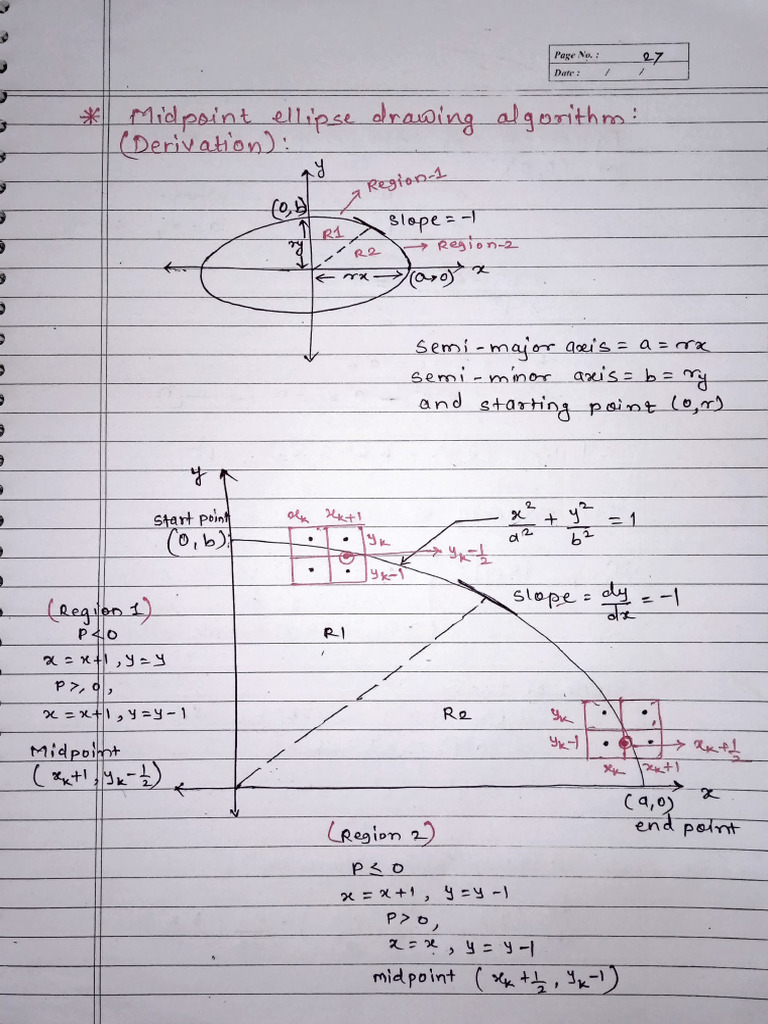 Page No. : 27
Date : / /
* Midpoint ellipse drawing algorithm:
(Derivation):
y
Region-1
(0, b)
slope = -1
R1
ry
R2
Region-2
rx
(a, 0)
x
semi-major axis = a = rx
semi-minor axis = b = ry
and starting point (0,r)
y
start point
(0, b)
xk xk+1
yk
yk-1/2
yk-1
x²/a² + y²/b² = 1
slope = dy/dx = -1
(Region 1)
P<0
x = x+1, y = y
P>,0,
x = x+1, y = y-1
Midpoint
(xk+1, yk-1/2)
R1
R2
yk
yk-1
xk+1/2
xk xk+1
x
(a,0)
end point
(Region 2)
P ≤ 0
x = x+1, y = y-1
P>0,
x = x, y = y-1
midpoint (xk+1/2, yk-1)